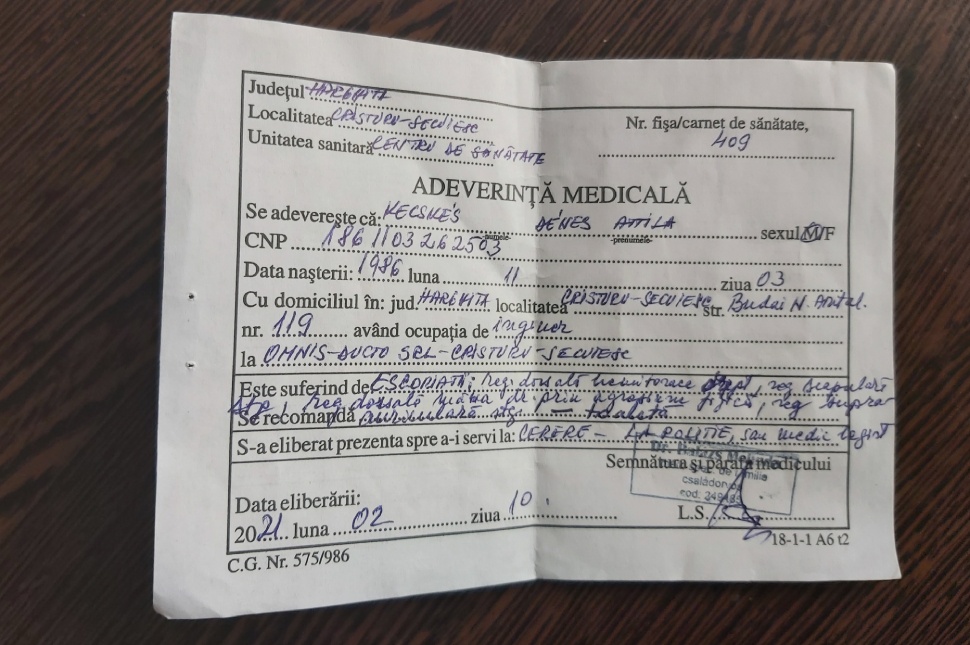 Județul HARGHITA
Localitatea CRISTURU-SECUIESC
Unitatea sanitară CENTRU DE SĂNĂTATE
Nr. fișa/carnet de sănătate,
409
ADEVERINȚĂ MEDICALĂ
Se adeverește că: KECSKÉS DÉNES ATTILA sexul M/F
-numele- -prenumele-
CNP 1861103262503
Data nașterii: 1986 luna 11 ziua 03
Cu domiciliul în: jud. HARGHITA localitatea CRISTURU-SECUIESC str. Budai N. Antal.
nr. 119 având ocupația de inginer
la OMNIS-DUCTO SRL-CRISTURU-SECUIESC
Este suferind de ESCORIAȚII: reg. dorsală hemitorace drept, reg. scapulară
stg, reg. dorsală mâna dr prin agresiune fizică, reg. supra
Se recomandă stg.
S-a eliberat prezenta spre a-i servi la: CERERE - LA POLIȚIE, sau medic legist
Semnătura și parafa medicului
familie
családorvos
cod:
Data eliberării:
2021 luna 02 ziua 10.
L.S.
C.G. Nr. 575/986
18-1-1 A6 t2